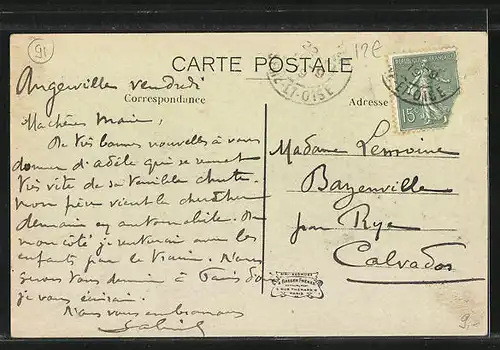 91
12€
CARTE POSTALE
Correspondance
Adresse
RÉPUBLIQUE FRANÇAISE
15c
ET-OISE
ET-OISE
Angerville vendredi
Ma chère
De très bonnes nouvelles à vous
donner d'adèle qui se remet
très vite de sa terrible chute.
mon père vient la chercher
demain en automobile. De
mon côté, je rentrerai avec les
enfants par le train. Nous
serons tous demain à Paris d'où
je vous écrirai.
Nous vous embrassons
Madame Lemoine
Bazenville
par Rye
Calvados
9.-